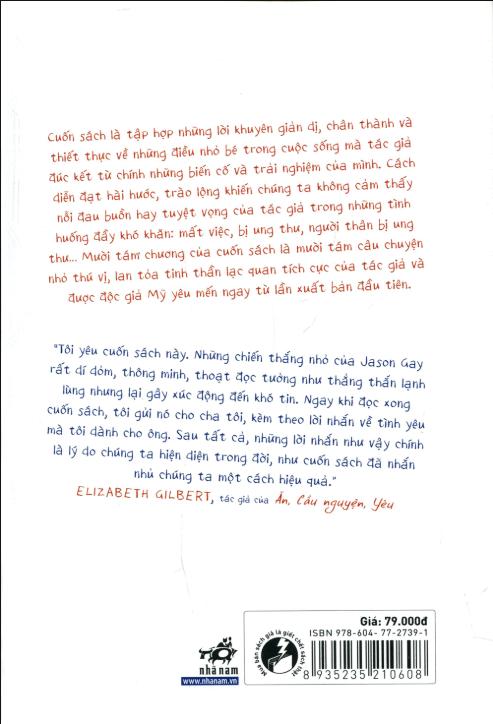 Cuốn sách là tập hợp những lời khuyên giản dị, chân thành và
thiết thực về những điều nhỏ bé trong cuộc sống mà tác giả
đúc kết từ chính những biến cố và trải nghiệm của mình. Cách
diễn đạt hài hước, trào lộng khiến chúng ta không cảm thấy
nỗi đau buồn hay tuyệt vọng của tác giả trong những tình
huống đầy khó khăn: mất việc, bị ung thư, người thân bị ung
thư... Mười tám chương của cuốn sách là mười tám câu chuyện
nhỏ thú vị, lan tỏa tinh thần lạc quan tích cực của tác giả và
được độc giả Mỹ yêu mến ngay từ lần xuất bản đầu tiên.
"Tôi yêu cuốn sách này. Những chiến thắng nhỏ của Jason Gay
rất dí dỏm, thông minh, thoạt đọc tưởng như thẳng thắn lạnh
lùng nhưng lại gây xúc động đến khó tin. Ngay khi đọc xong
cuốn sách, tôi gửi nó cho cha tôi, kèm theo lời nhắn về tình yêu
mà tôi dành cho ông. Sau tất cả, những lời nhắn như vậy chính
là lý do chúng ta hiện diện trong đời, như cuốn sách đã nhắn
nhủ chúng ta một cách hiệu quả."
ELIZABETH GILBERT, tác giả của Ăn, Cầu nguyện, Yêu
nhã nam
www.nhanam.vn
Mua bán sách giả là giết chết sách thật
Giá: 79.000đ
ISBN 978-604-77-2739-1
8 935235 210608